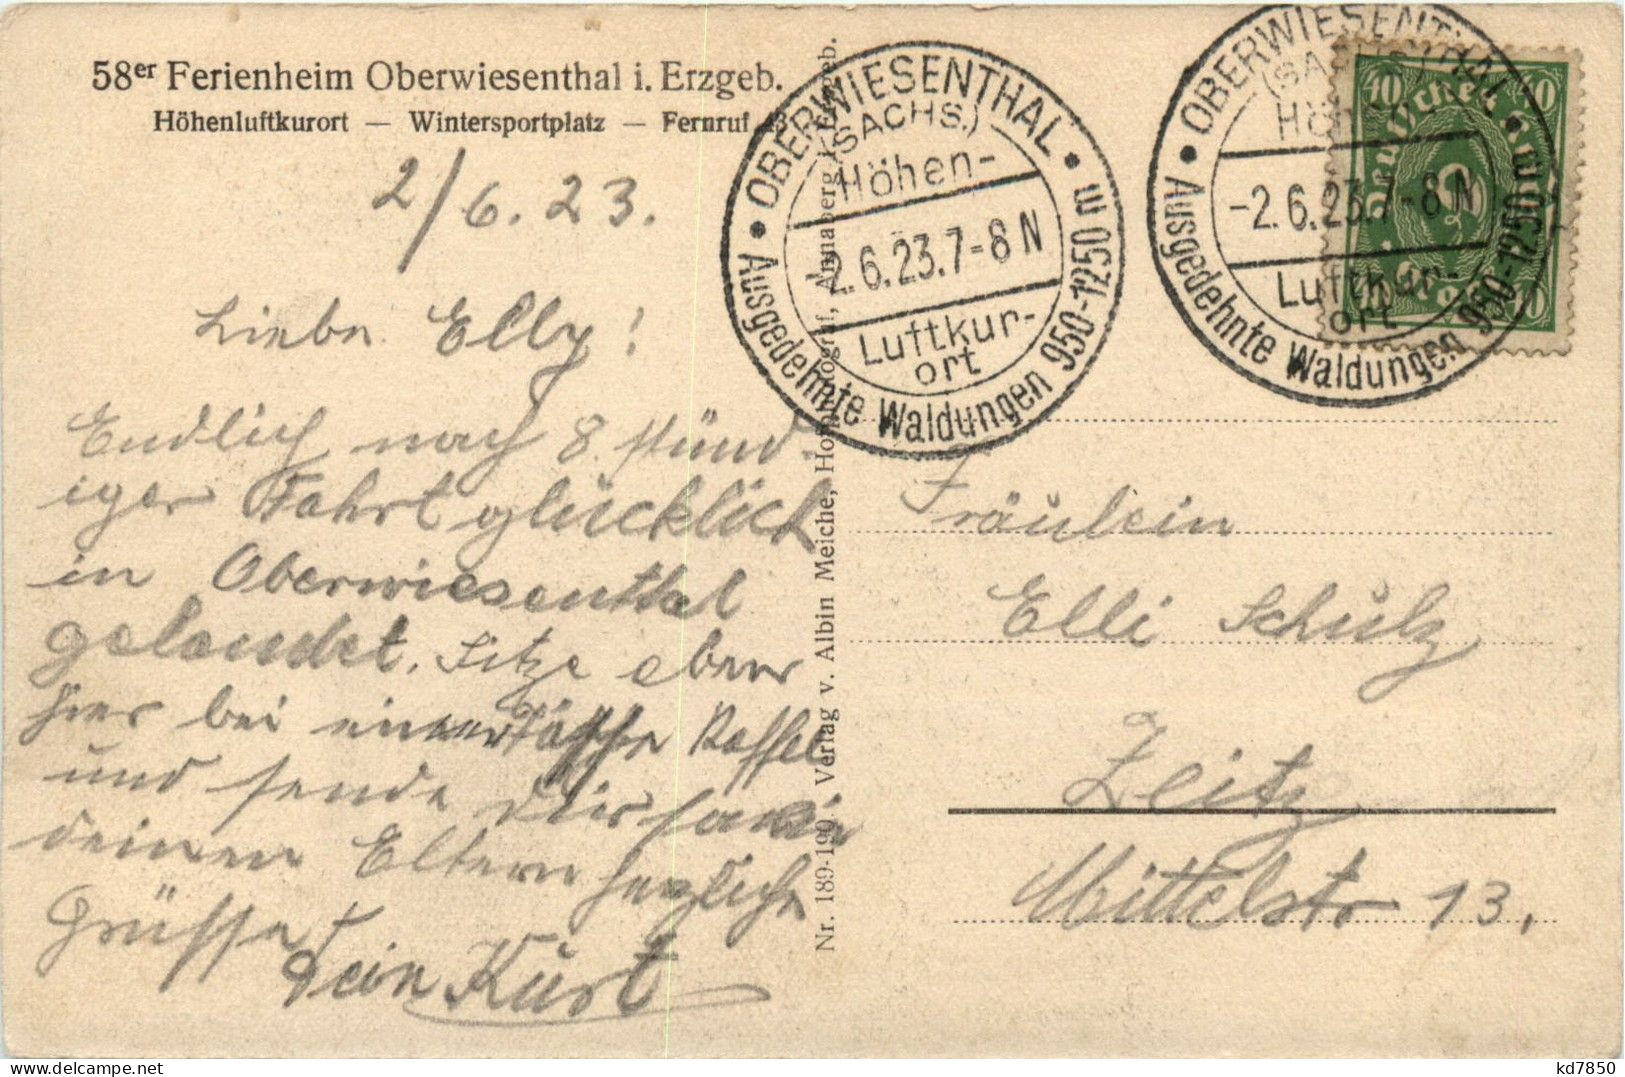 58er Ferienheim Oberwiesenthal i. Erzgeb.
Höhenluftkurort — Wintersportplatz — Fernruf
2/6.23.
Liebe Elly!
Endlich nach 8 stünd-
iger Fahrt glücklich
in Oberwiesenthal
gelandet. Sitze eben
hier bei einer Tasse Kaffee
und sende Dir sowie
deinen Eltern herzliche
Grüsse
Dein Kurt
Nr. 189-190 Verlag v. Albin Meiche, Annaberg i. Erzgeb.
OBERWIESENTHAL
(SACHS.)
Höhen-
2.6.23.7-8N
Luftkur-
ort
Ausgedehnte Waldungen 950-1250 m
OBERWIESENTHAL
(SACHS.)
Höhen-
-2.6.23.7-8N
Luftkur-
ort
Ausgedehnte Waldungen 950-1250 m
40 40
Deutsches Reich
40 40
Fräulein
Elli Schulz
Zeitz
Mittelstr 13.
kd7850